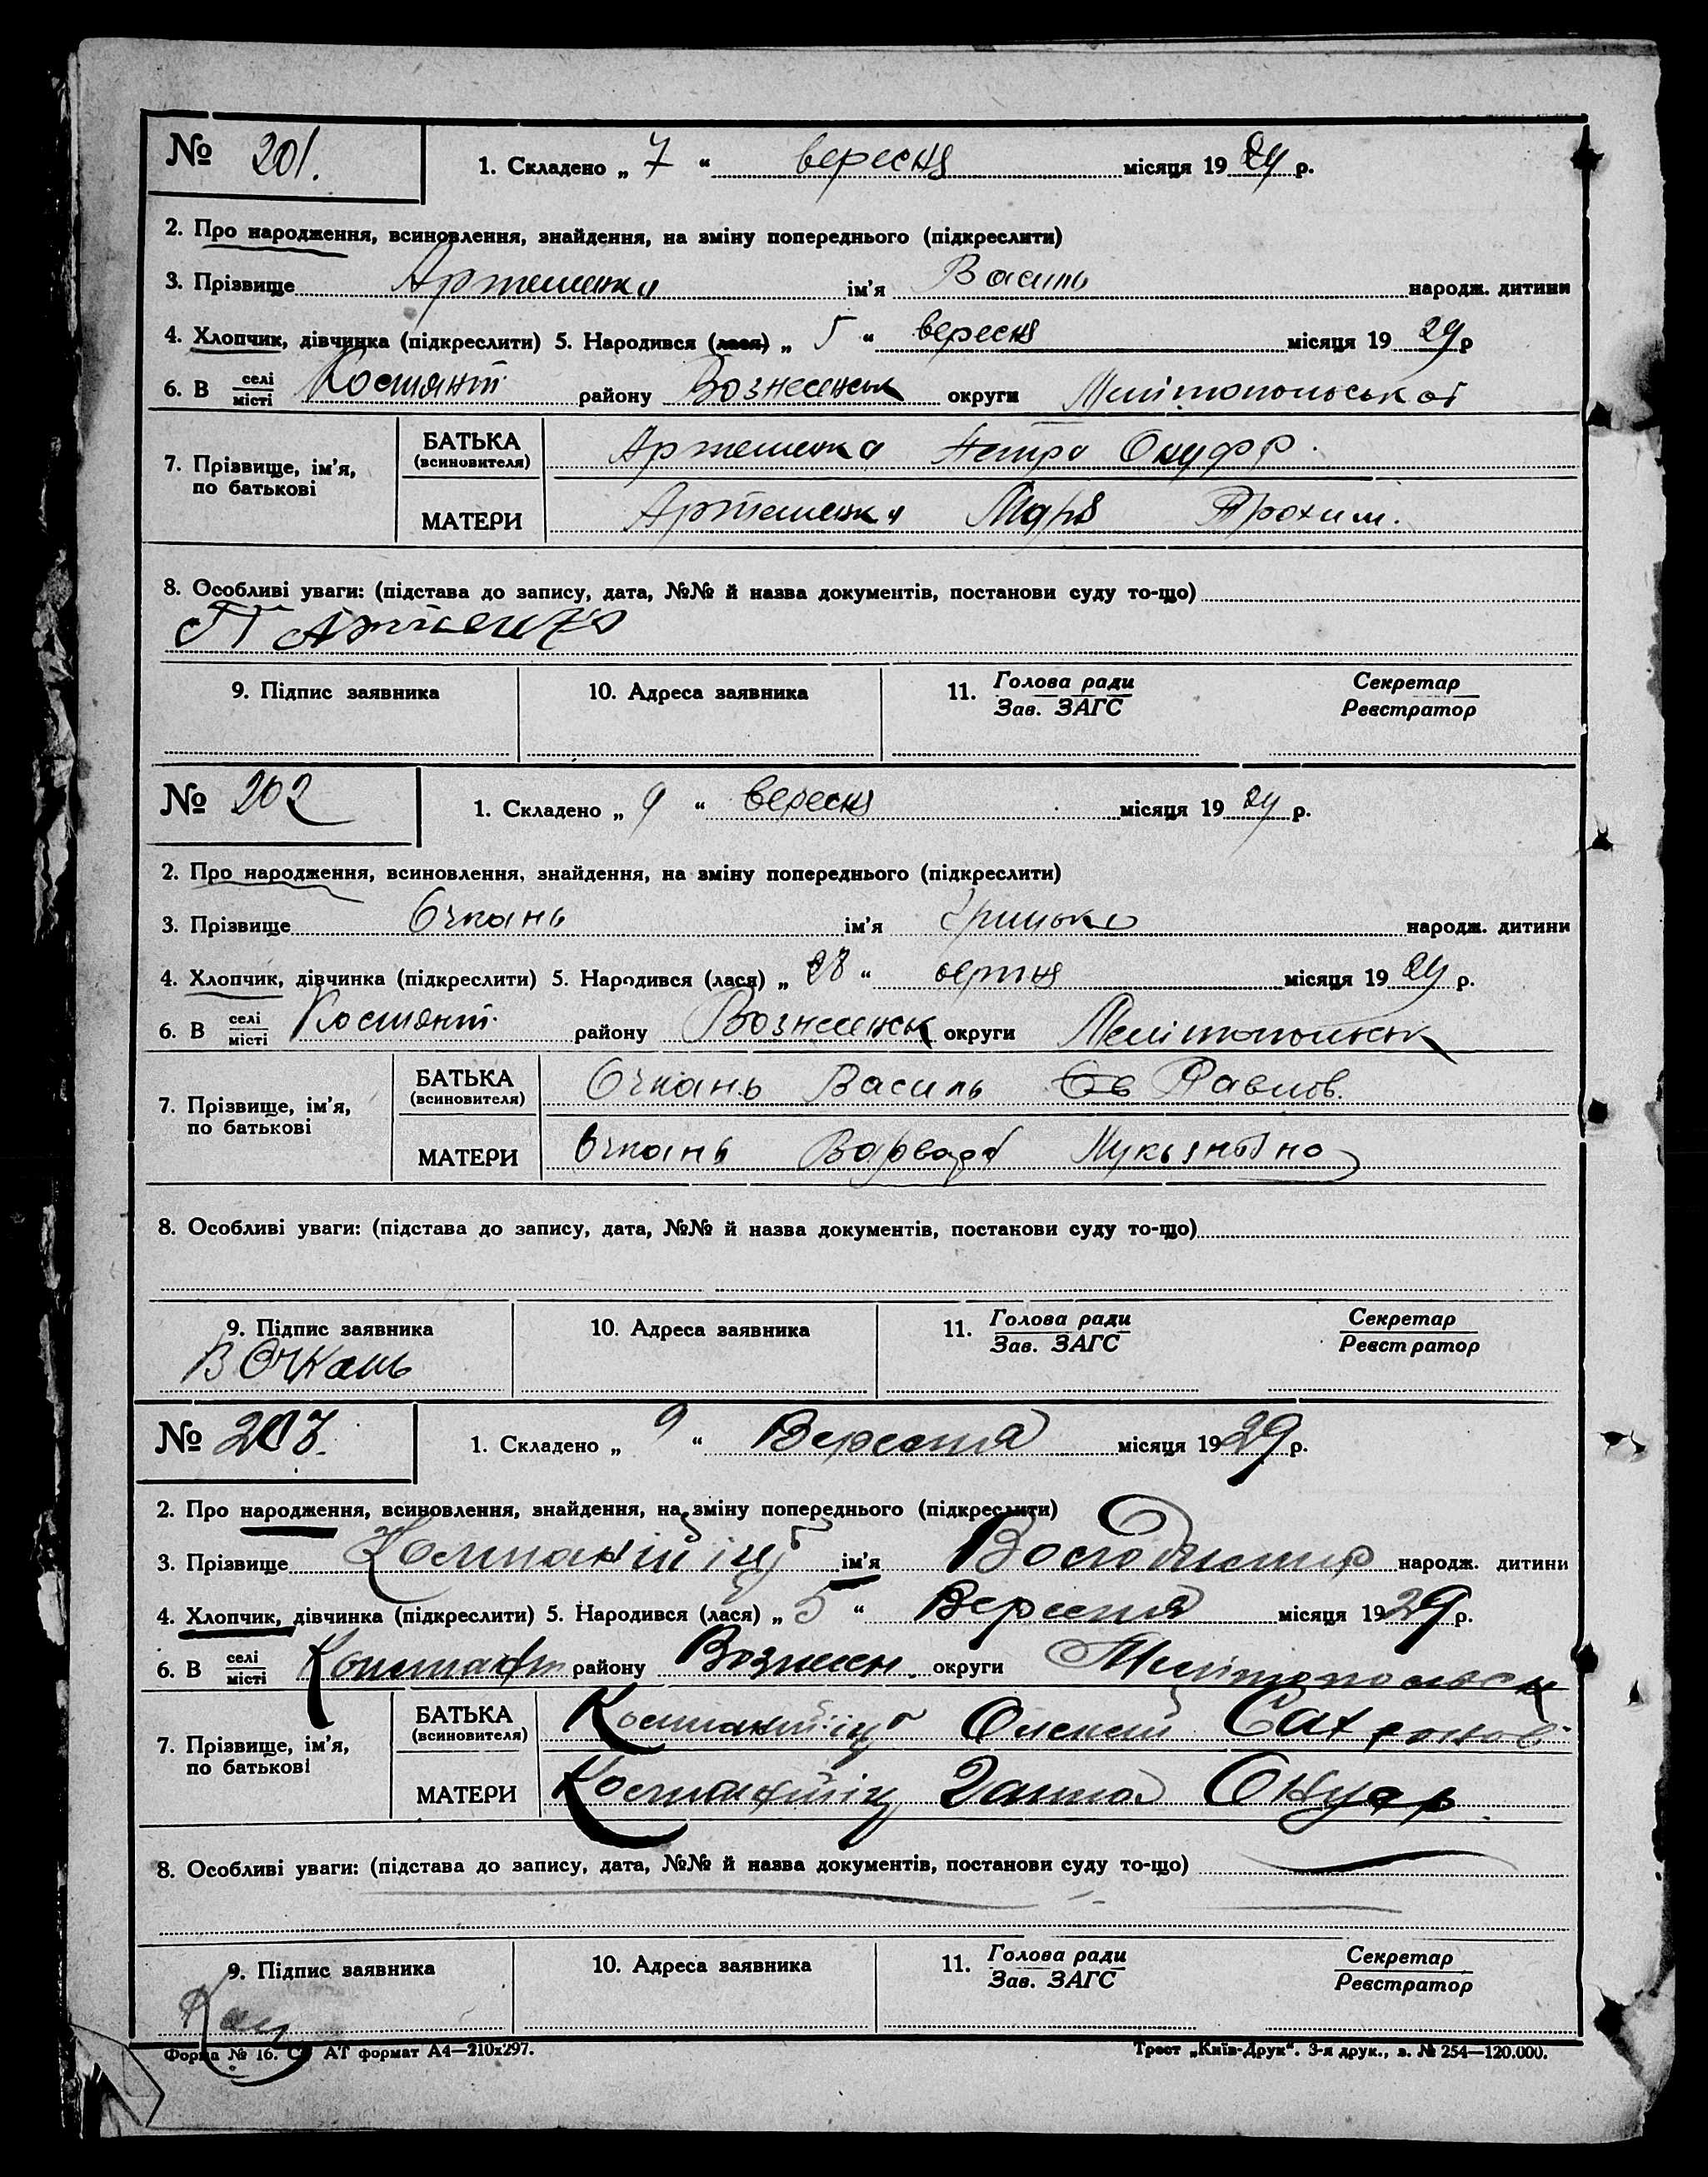 № 201. 1. Складено „ 7 “ вересня місяця 19 29 р.
2. Про народження, всиновлення, знайдення, на зміну попереднього (підкреслити)
3. Прізвище Артеменко ім’я Василь народж. дитини
4. Хлопчик, дівчинка (підкреслити) 5. Народився (лася) „ 5 “ вересня місяця 19 29 р
6. В селі/місті Костянт. району Вознесенськ округи Мелітопольськой
7. Прізвище, ім’я, по батькові
БАТЬКА (всиновителя) Артеменко Петро Онуфр.
МАТЕРИ Артеменко Марія Трохим.
8. Особливі уваги: (підстава до запису, дата, №№ й назва документів, постанови суду то-що)
П Артменко
9. Підпис заявника 10. Адреса заявника 11. Голова ради/Зав. ЗАГС Секретар/Реєстратор
№ 202 1. Складено „ 9 “ вересня місяця 19 29 р.
2. Про народження, всиновлення, знайдення, на зміну попереднього (підкреслити)
3. Прізвище Очкань ім’я Грицько народж. дитини
4. Хлопчик, дівчинка (підкреслити) 5. Народився (лася) „ 28 “ серпня місяця 19 29 р.
6. В селі/місті Костянт. району Вознесенськ округи Мелітопольськ
7. Прізвище, ім’я, по батькові
БАТЬКА (всиновителя) Очкань Василь Павлов.
МАТЕРИ Очкань Варвара Лукьянівна
8. Особливі уваги: (підстава до запису, дата, №№ й назва документів, постанови суду то-що)
9. Підпис заявника 10. Адреса заявника 11. Голова ради/Зав. ЗАГС Секретар/Реєстратор
В Очкань
№ 203. 1. Складено „ 9 “ Вересня місяця 19 29 р.
2. Про народження, всиновлення, знайдення, на зміну попереднього (підкреслити)
3. Прізвище ім’я Володимир народж. дитини
4. Хлопчик, дівчинка (підкреслити) 5. Народився (лася) „ 5 “ Вересня місяця 19 29 р.
6. В селі/місті Констант району Вознесен. округи Мелітопольськ
7. Прізвище, ім’я, по батькові
БАТЬКА (всиновителя) Олексій
МАТЕРИ Ганна Онуфр.
8. Особливі уваги: (підстава до запису, дата, №№ й назва документів, постанови суду то-що)
9. Підпис заявника 10. Адреса заявника 11. Голова ради/Зав. ЗАГС Секретар/Реєстратор
Форма № 16. АТ формат А4—210х297. Трест „Київ-Друк“. 3-я друк., з. № 254—120.000.